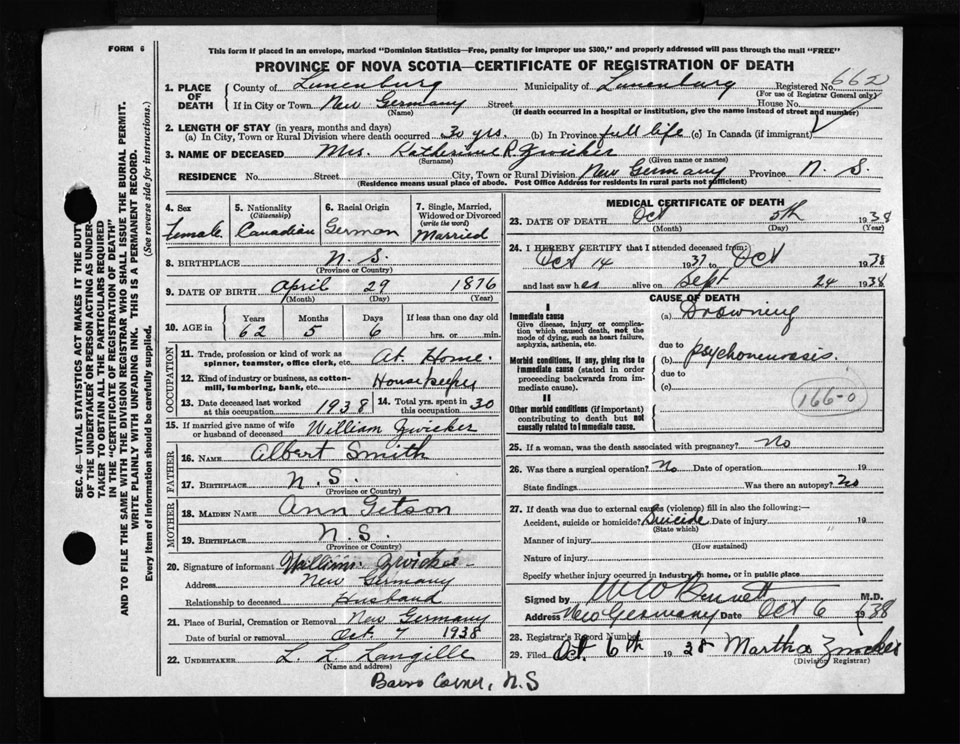 FORM 6
This form if placed in an envelope, marked "Dominion Statistics—Free, penalty for improper use $300," and properly addressed will pass through the mail "FREE"
PROVINCE OF NOVA SCOTIA—CERTIFICATE OF REGISTRATION OF DEATH
662
1. PLACE OF DEATH County of Lunenburg Municipality of Lunenburg Registered No.
(For use of Registrar General only)
If in City or Town New Germany Street House No.
(Name) (If death occurred in a hospital or institution, give the name instead of street and number)
2. LENGTH OF STAY (in years, months and days)
(a) In City, Town or Rural Division where death occurred 30 yrs. (b) In Province full life (c) In Canada (if immigrant)
3. NAME OF DECEASED Mrs. Katherine R. Zwicker
(Surname) (Given name or names)
RESIDENCE No. Street City, Town or Rural Division New Germany Province N. S.
(Residence means usual place of abode. Post Office Address for residents in rural parts not sufficient)
4. Sex female
5. Nationality (Citizenship) Canadian
6. Racial Origin German
7. Single, Married, Widowed or Divorced (write the word) Married
8. BIRTHPLACE N. S.
(Province or Country)
9. DATE OF BIRTH April 29 1876
(Month) (Day) (Year)
10. AGE in Years Months Days If less than one day old
62 5 6 hrs. or min.
OCCUPATION
11. Trade, profession or kind of work as spinner, teamster, office clerk, etc. At Home.
12. Kind of industry or business, as cotton-mill, lumbering, bank, etc. Housekeeper
13. Date deceased last worked at this occupation 1938 14. Total yrs. spent in this occupation 30
15. If married give name of wife or husband of deceased William Zwicker
FATHER
16. NAME Albert Smith
17. BIRTHPLACE N. S.
(Province or Country)
MOTHER
18. MAIDEN NAME Ann Getson
19. BIRTHPLACE N. S.
(Province or Country)
20. Signature of informant William Zwicker
Address New Germany
Relationship to deceased Husband
21. Place of Burial, Cremation or Removal New Germany
Date of burial or removal Oct 7 1938
22. UNDERTAKER L. L. Langille
(Name and address)
Barss Corner, N.S
MEDICAL CERTIFICATE OF DEATH
23. DATE OF DEATH Oct 5th 1938
(Month) (Day) (Year)
24. I HEREBY CERTIFY that I attended deceased from:
Oct 14 1937 to Oct 1938
and last saw her alive on Sept 24 1938
CAUSE OF DEATH
I
Immediate cause
Give disease, injury or complication which caused death, not the mode of dying, such as heart failure, asphyxia, asthenia, etc.
(a) Drowning
due to
Morbid conditions, if any, giving rise to immediate cause (stated in order proceeding backwards from immediate cause).
(b) psychoneurosis.
due to
(c)
166-0
II
Other morbid conditions (if important) contributing to death but not causally related to immediate cause.
25. If a woman, was the death associated with pregnancy? No
26. Was there a surgical operation? No Date of operation 19
State findings Was there an autopsy? No
27. If death was due to external causes (violence) fill in also the following:—
Accident, suicide or homicide? Suicide Date of injury 19
(State which)
Manner of injury
(How sustained)
Nature of injury
Specify whether injury occurred in industry, in home, or in public place
Signed by Bennett M.D.
Address New Germany Date Oct 6 1938
28. Registrar's Record Number
29. Filed Oct. 6th 1938 Martha Zwicker
(Division Registrar)
SEC. 46—VITAL STATISTICS ACT MAKES IT THE DUTY
OF THE UNDERTAKER OR PERSON ACTING AS UNDER-
TAKER TO OBTAIN ALL THE PARTICULARS REQUIRED
IN THE "CERTIFICATE OF REGISTRATION OF DEATH"
AND TO FILE THE SAME WITH THE DIVISION REGISTRAR WHO SHALL ISSUE THE BURIAL PERMIT.
WRITE PLAINLY WITH UNFADING INK. THIS IS A PERMANENT RECORD.
Every item of information should be carefully supplied. (See reverse side for instructions.)